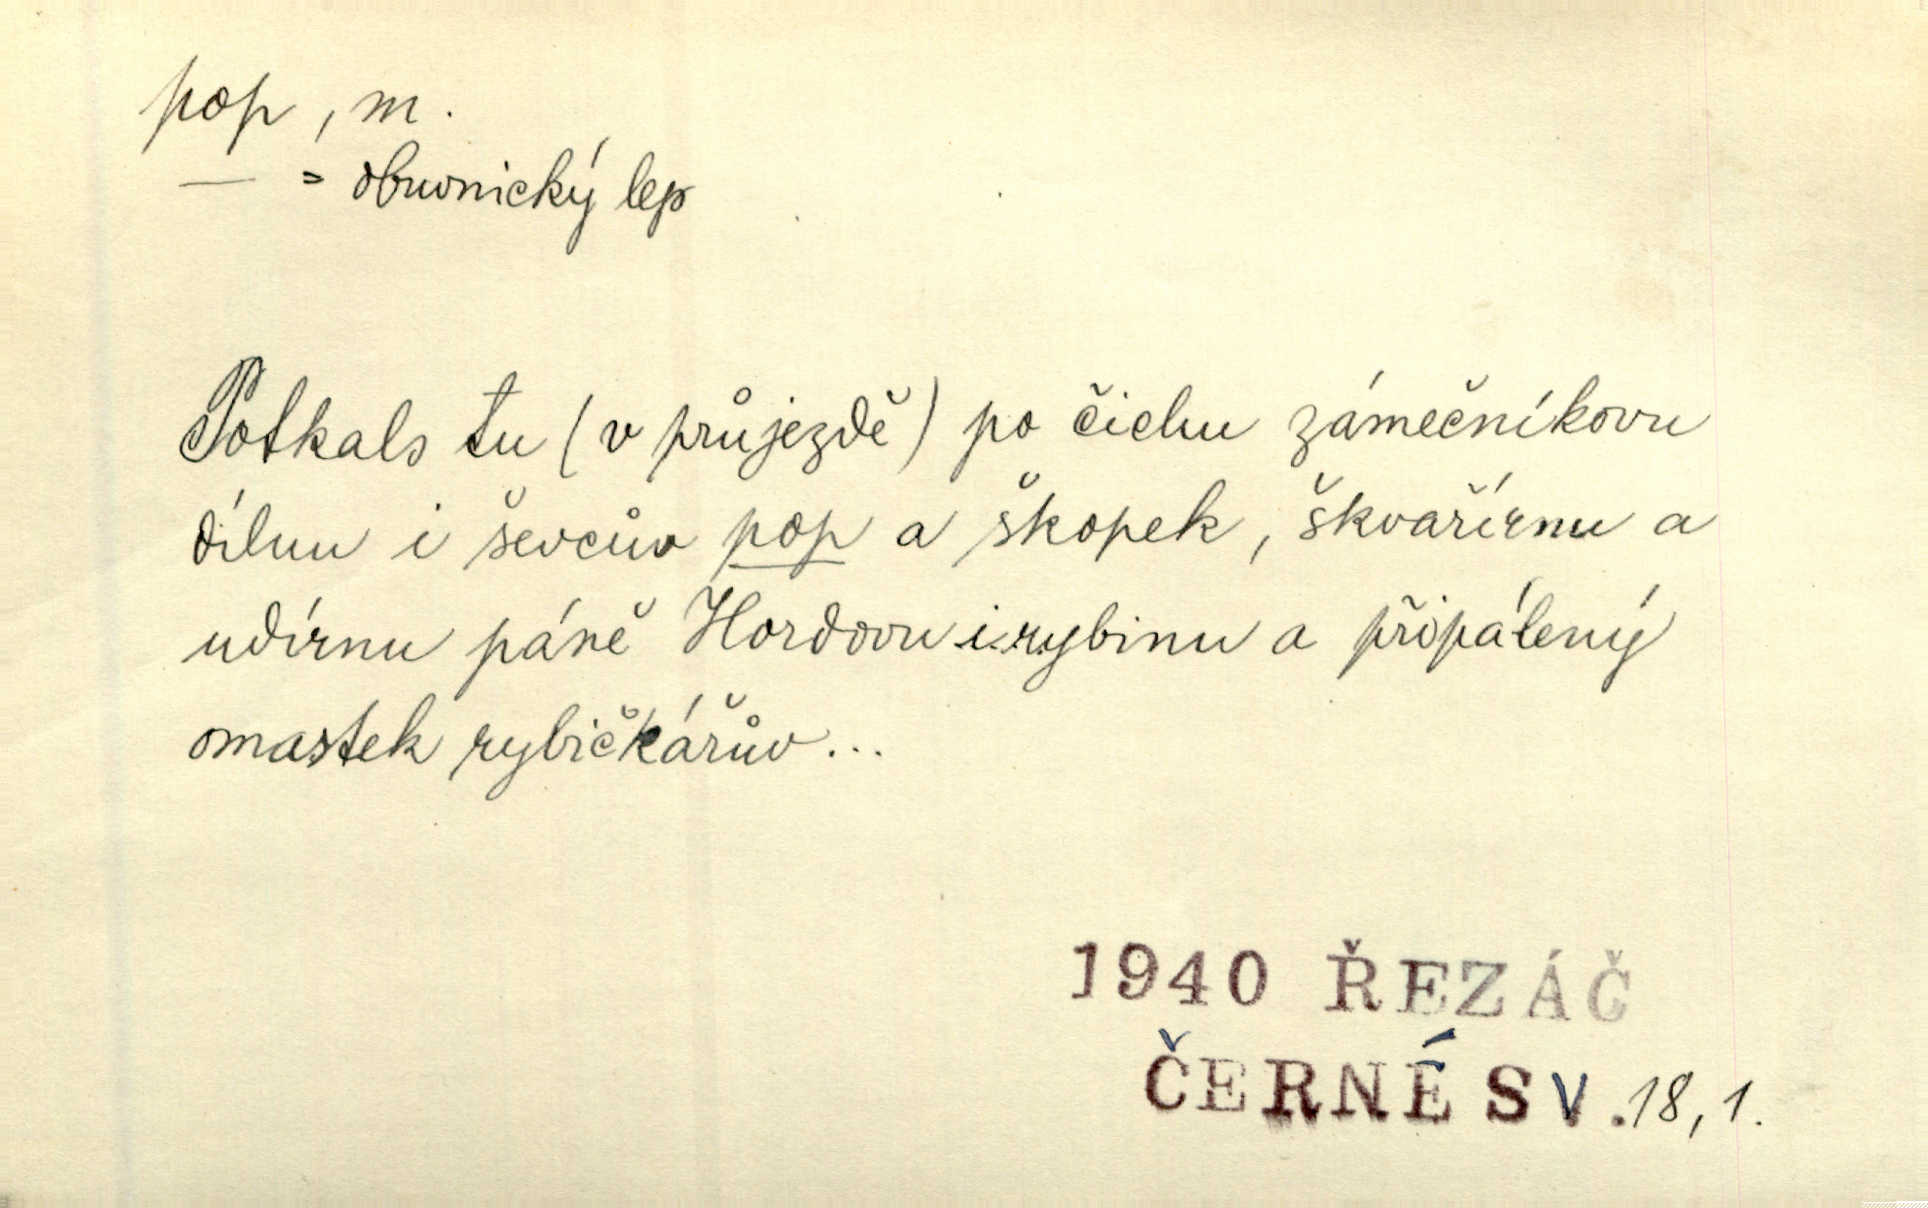 pop, m.
— = obuvnický lep
Potkals tu (v průjezdě) po čichu zámečníkovu
dílnu i ševcův pop a škopek, škvařírnu a
udírnu páně Hordovu i rybinu a připálený
omastek rybičkářův...
1940 ŘEZÁČ
ČERNÉ SV. 18, 1.